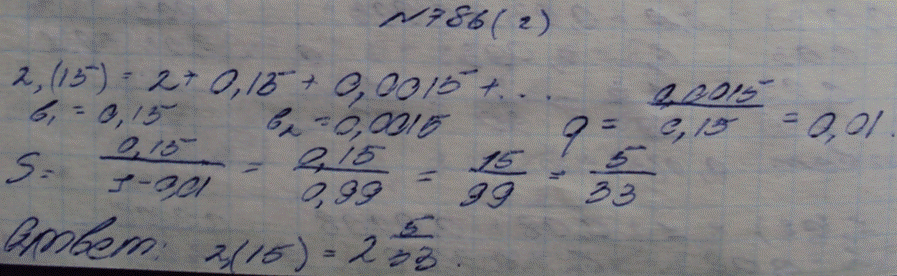 №786(2)
2,(15) = 2 + 0,15 + 0,0015 + ...
b₁ = 0,15 b₂ = 0,0015 q = 0,0015/0,15 = 0,01.
S = 0,15/1-0,01 = 0,15/0,99 = 15/99 = 5/33
Ответ: 2,(15) = 2 5/33.